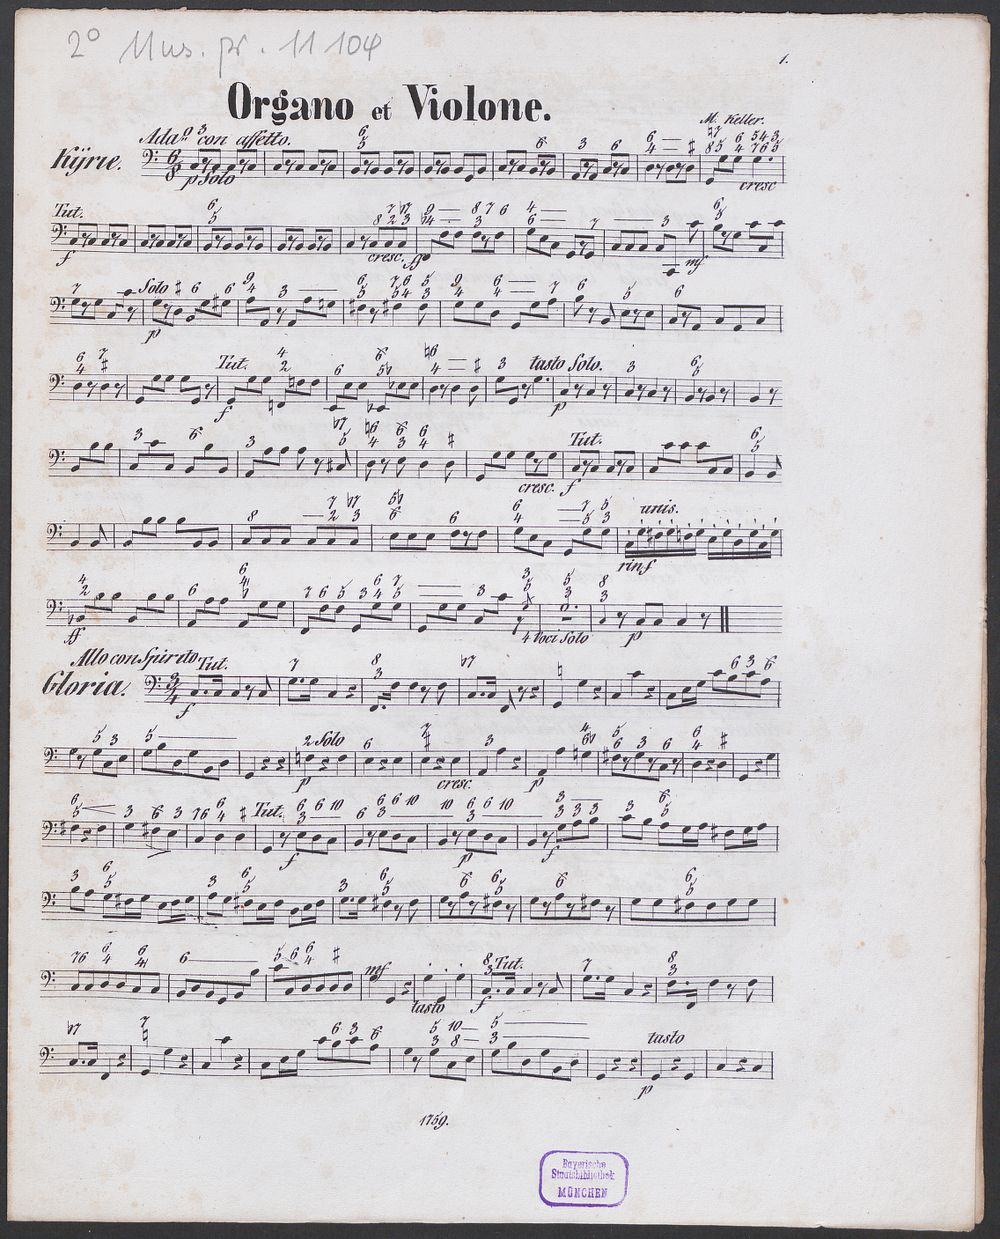 2° Mus. pr. 11 104
1.
Organo et Violone.
M. Keller.
Ada.º con affetto.
Kÿrie.
p Solo
cresc
Tut.
f
cresc.
mf
Solo
p
Tut.
tasto Solo.
f
p
Tut.
cresc. f
unis.
rinf
ff
4 Voci Solo
p
Allo con Spirito
Tut.
Gloria.
f
Solo
p
cresc.
p
Tut.
f
p
f
mf
Tut.
tasto
f
tasto
p
1759.
Bayerische
Staatsbibliothek
MÜNCHEN